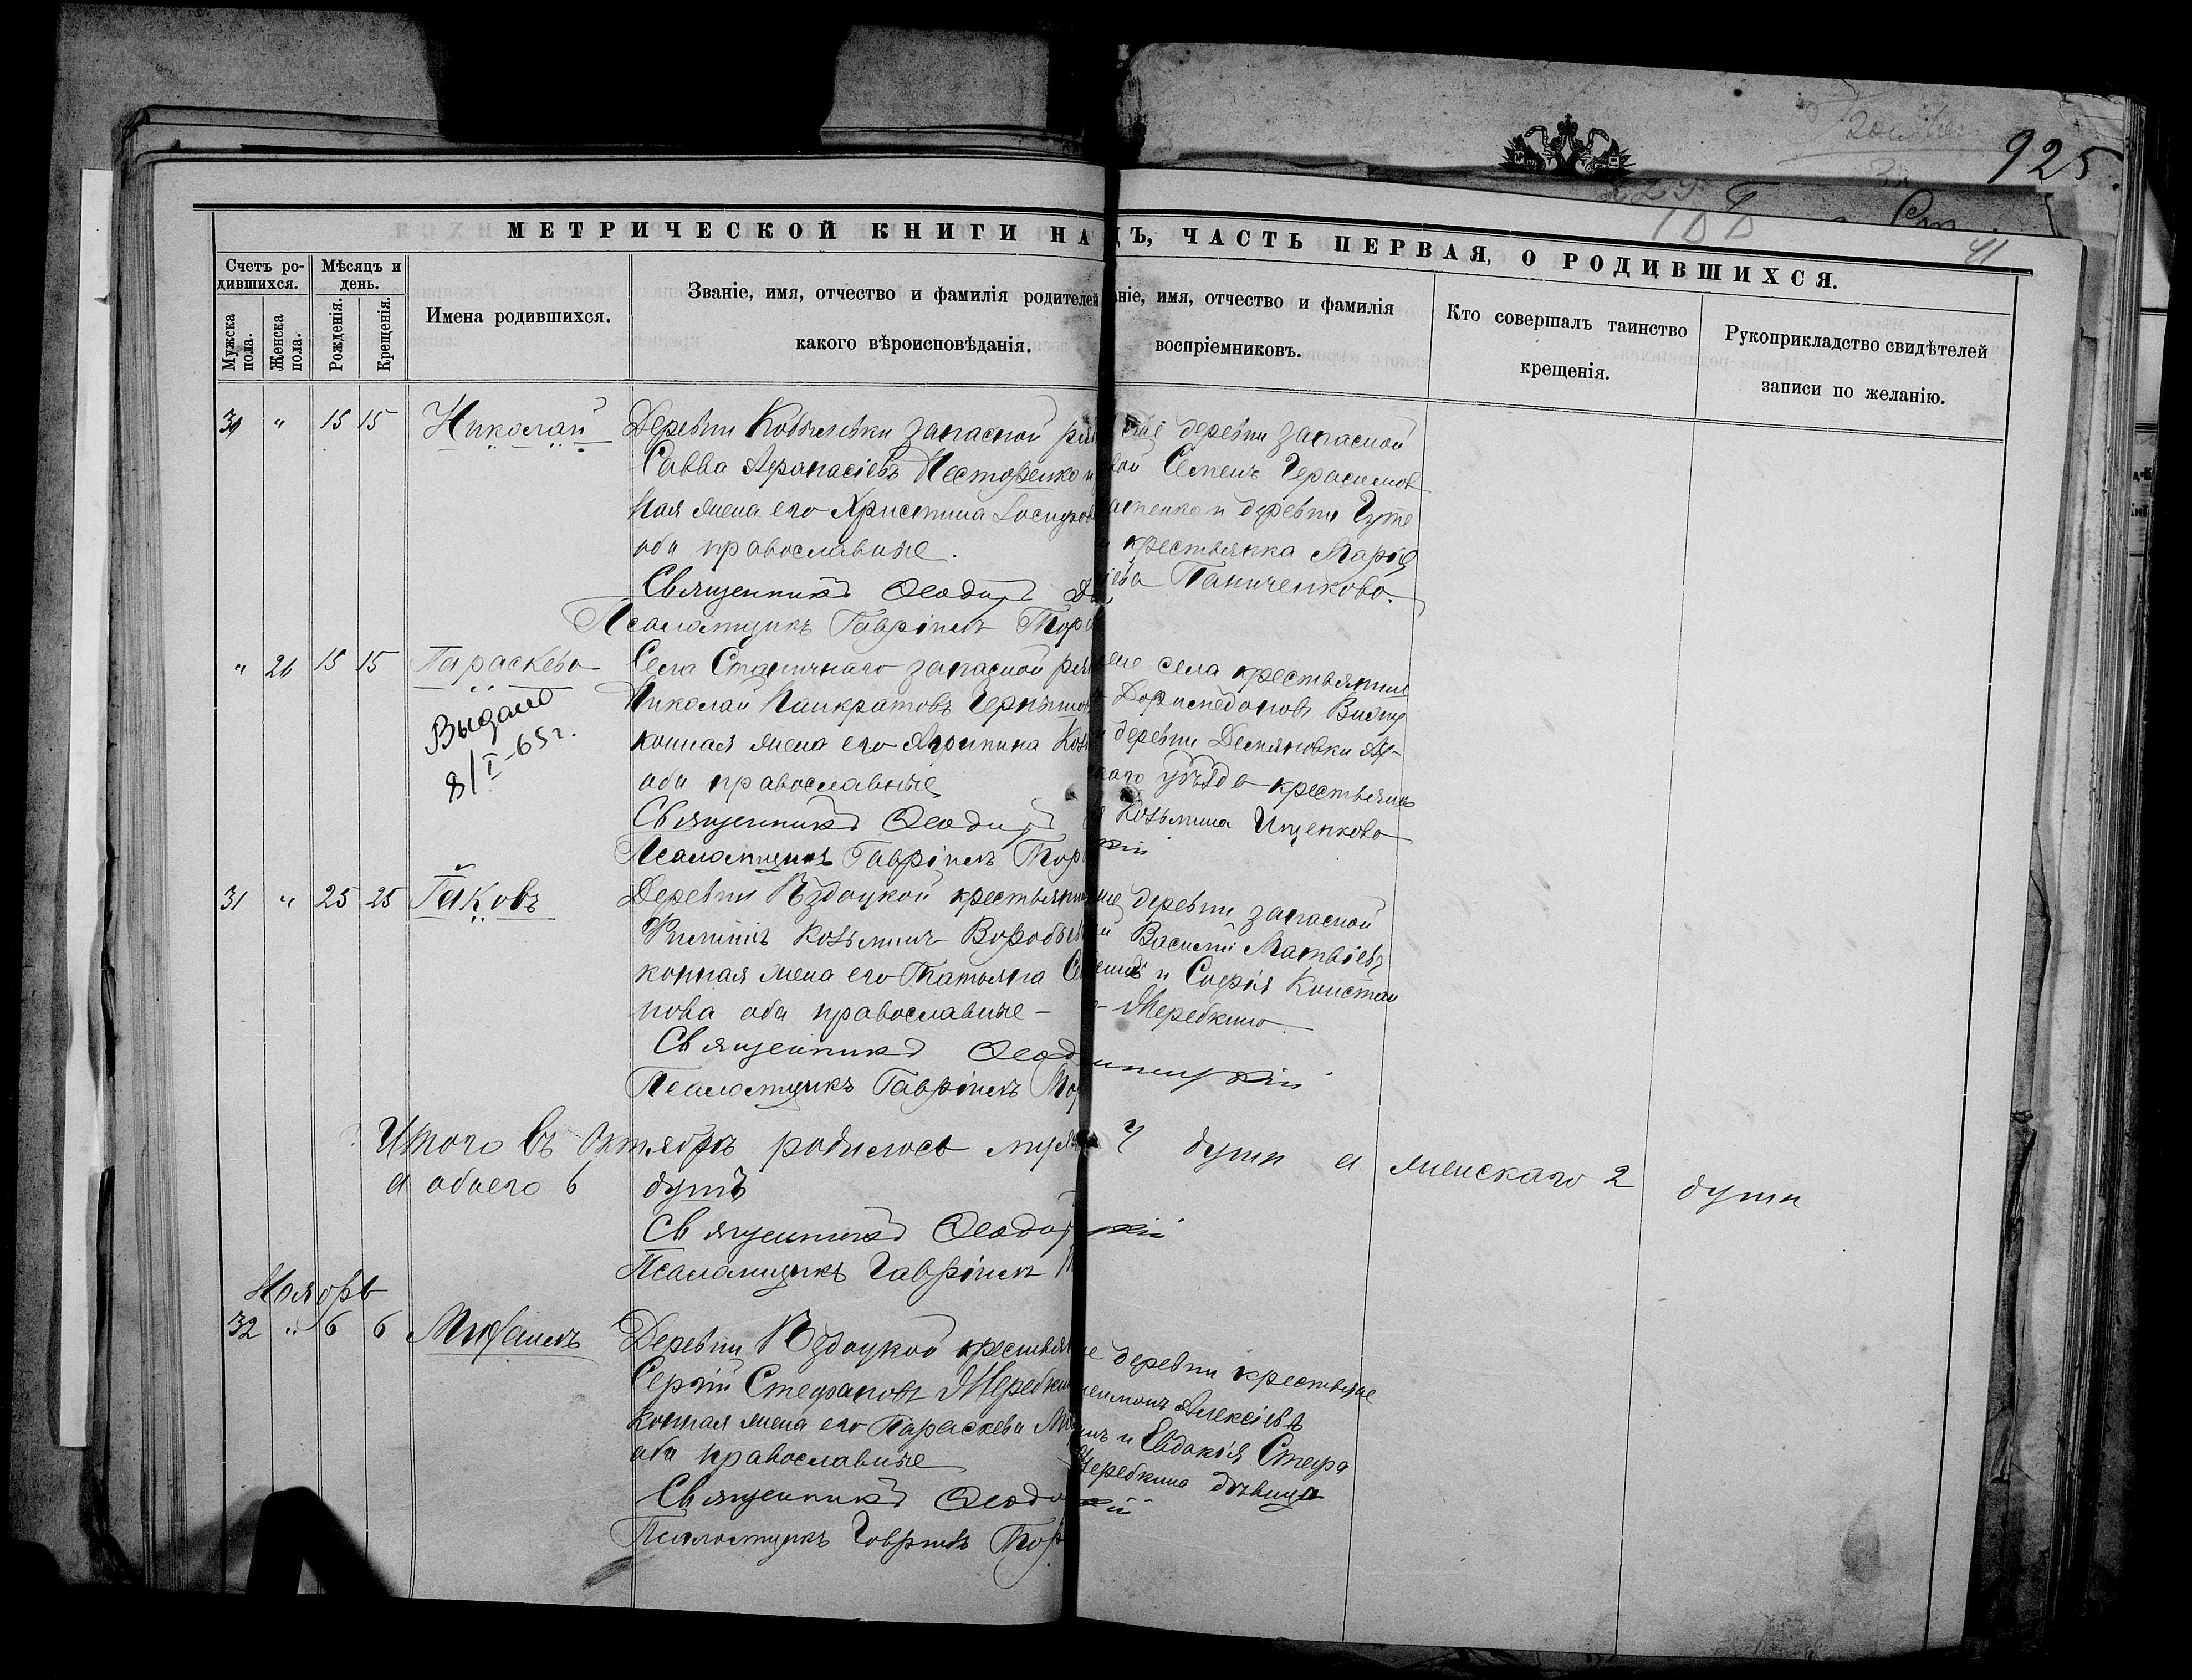 925.
41
МЕТРИЧЕСКОЙ КНИГИ НА
ДЪ, ЧАСТЬ ПЕРВАЯ, О РОДИВШИХСЯ.
Счетъ ро-
дившихся.
Мѣсяцъ и
день.
Мужска
пола.
Женска
пола.
Рожденія.
Крещенія.
Имена родившихся.
Званіе, имя, отчество и фамилія родителей
какого вѣроисповѣданія.
ніе, имя, отчество и фамилія
воспріемниковъ.
Кто совершалъ таинство
крещенія.
Рукоприкладство свидѣтелей
записи по желанію.
30 " 15 15 Николай
Деревни Кобылевки запасной ряд
Савва Аѳанасіевъ Нестеренко и
ная жена его Христина
оба православные.
Священникъ Ѳеодоръ
Псаломщикъ Гавріилъ Тор
деревни запасной
Семенъ Герасимов
енко и деревни Гуте
крестьянка Марія
ева Паниченкова.
" 26 15 15 Параскева
Выдано
8/I-65г.
Села Стариинаго запасной ряд
Николай Панкратовъ Черныш
конная жена его Агрипина Коз
оба православные
Священникъ Ѳеодоръ
Псаломщикъ Гавріилъ Тор
села крестьянин
деревни Демяновки
каго уѣзда крестьянка
Козьмина Ищенкова
31 " 25 25 Іаковъ
Деревни Вздоцкой крестьянин
Филиппъ Козьминъ Воробьев
конная жена его Татьяна Се
нова оба православные -
Священникъ Ѳеод
Псаломщикъ Гавріилъ Тор
деревни запасной
Василій Матвіевъ
и Софія Констан
Жеребкина.
Итого въ Октябрѣ родилось муж
4 души а женскаго 2 души
а обоего 6 душъ
Священникъ Ѳеодо
Псаломщикъ Гавріилъ
Ноябрь
32 " 6 6 Михаилъ
Деревни Вздоцкой крестьян
Сергій Стефановъ Жеребки
конная жена его Параскева
оба православные
Священникъ Ѳеодо
Псаломщикъ Гавріилъ Тор
деревни крестьяне
Алексіевъ
и Евдокія Стефа
Жеребкина дѣвица